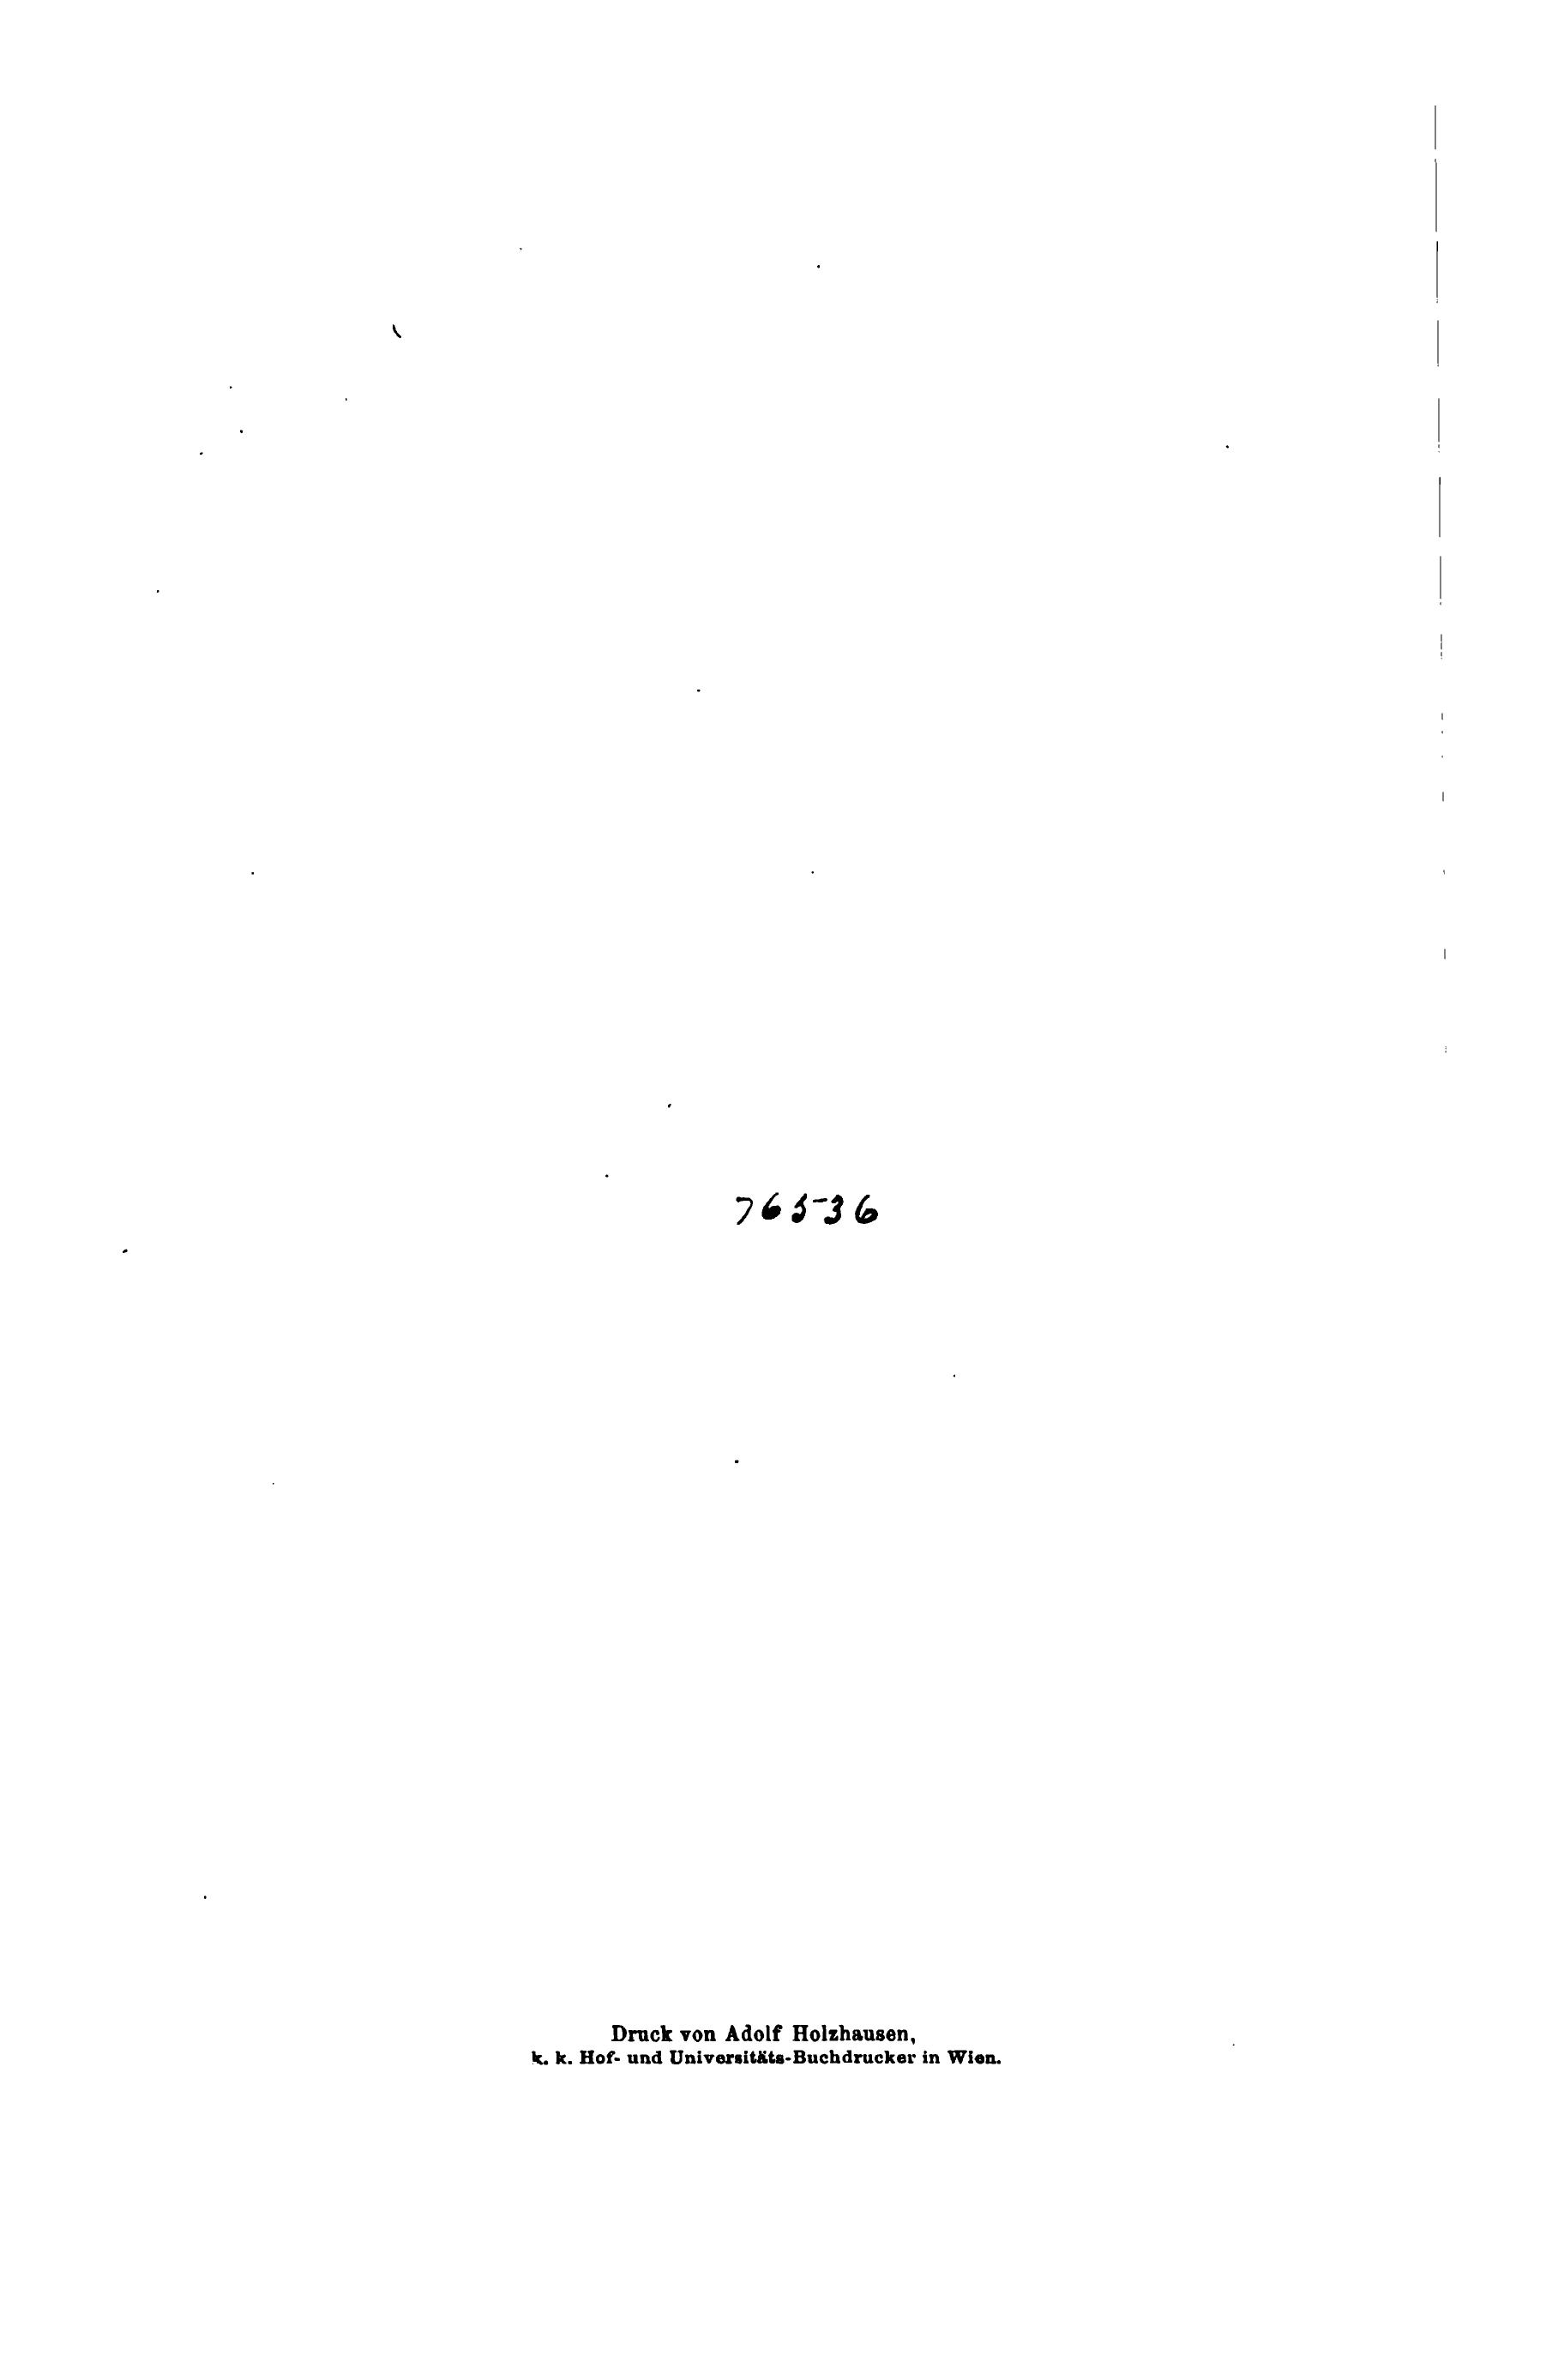 76536
Druck von Adolf Holzhausen,
k. k. Hof- und Universitäts-Buchdrucker in Wien.